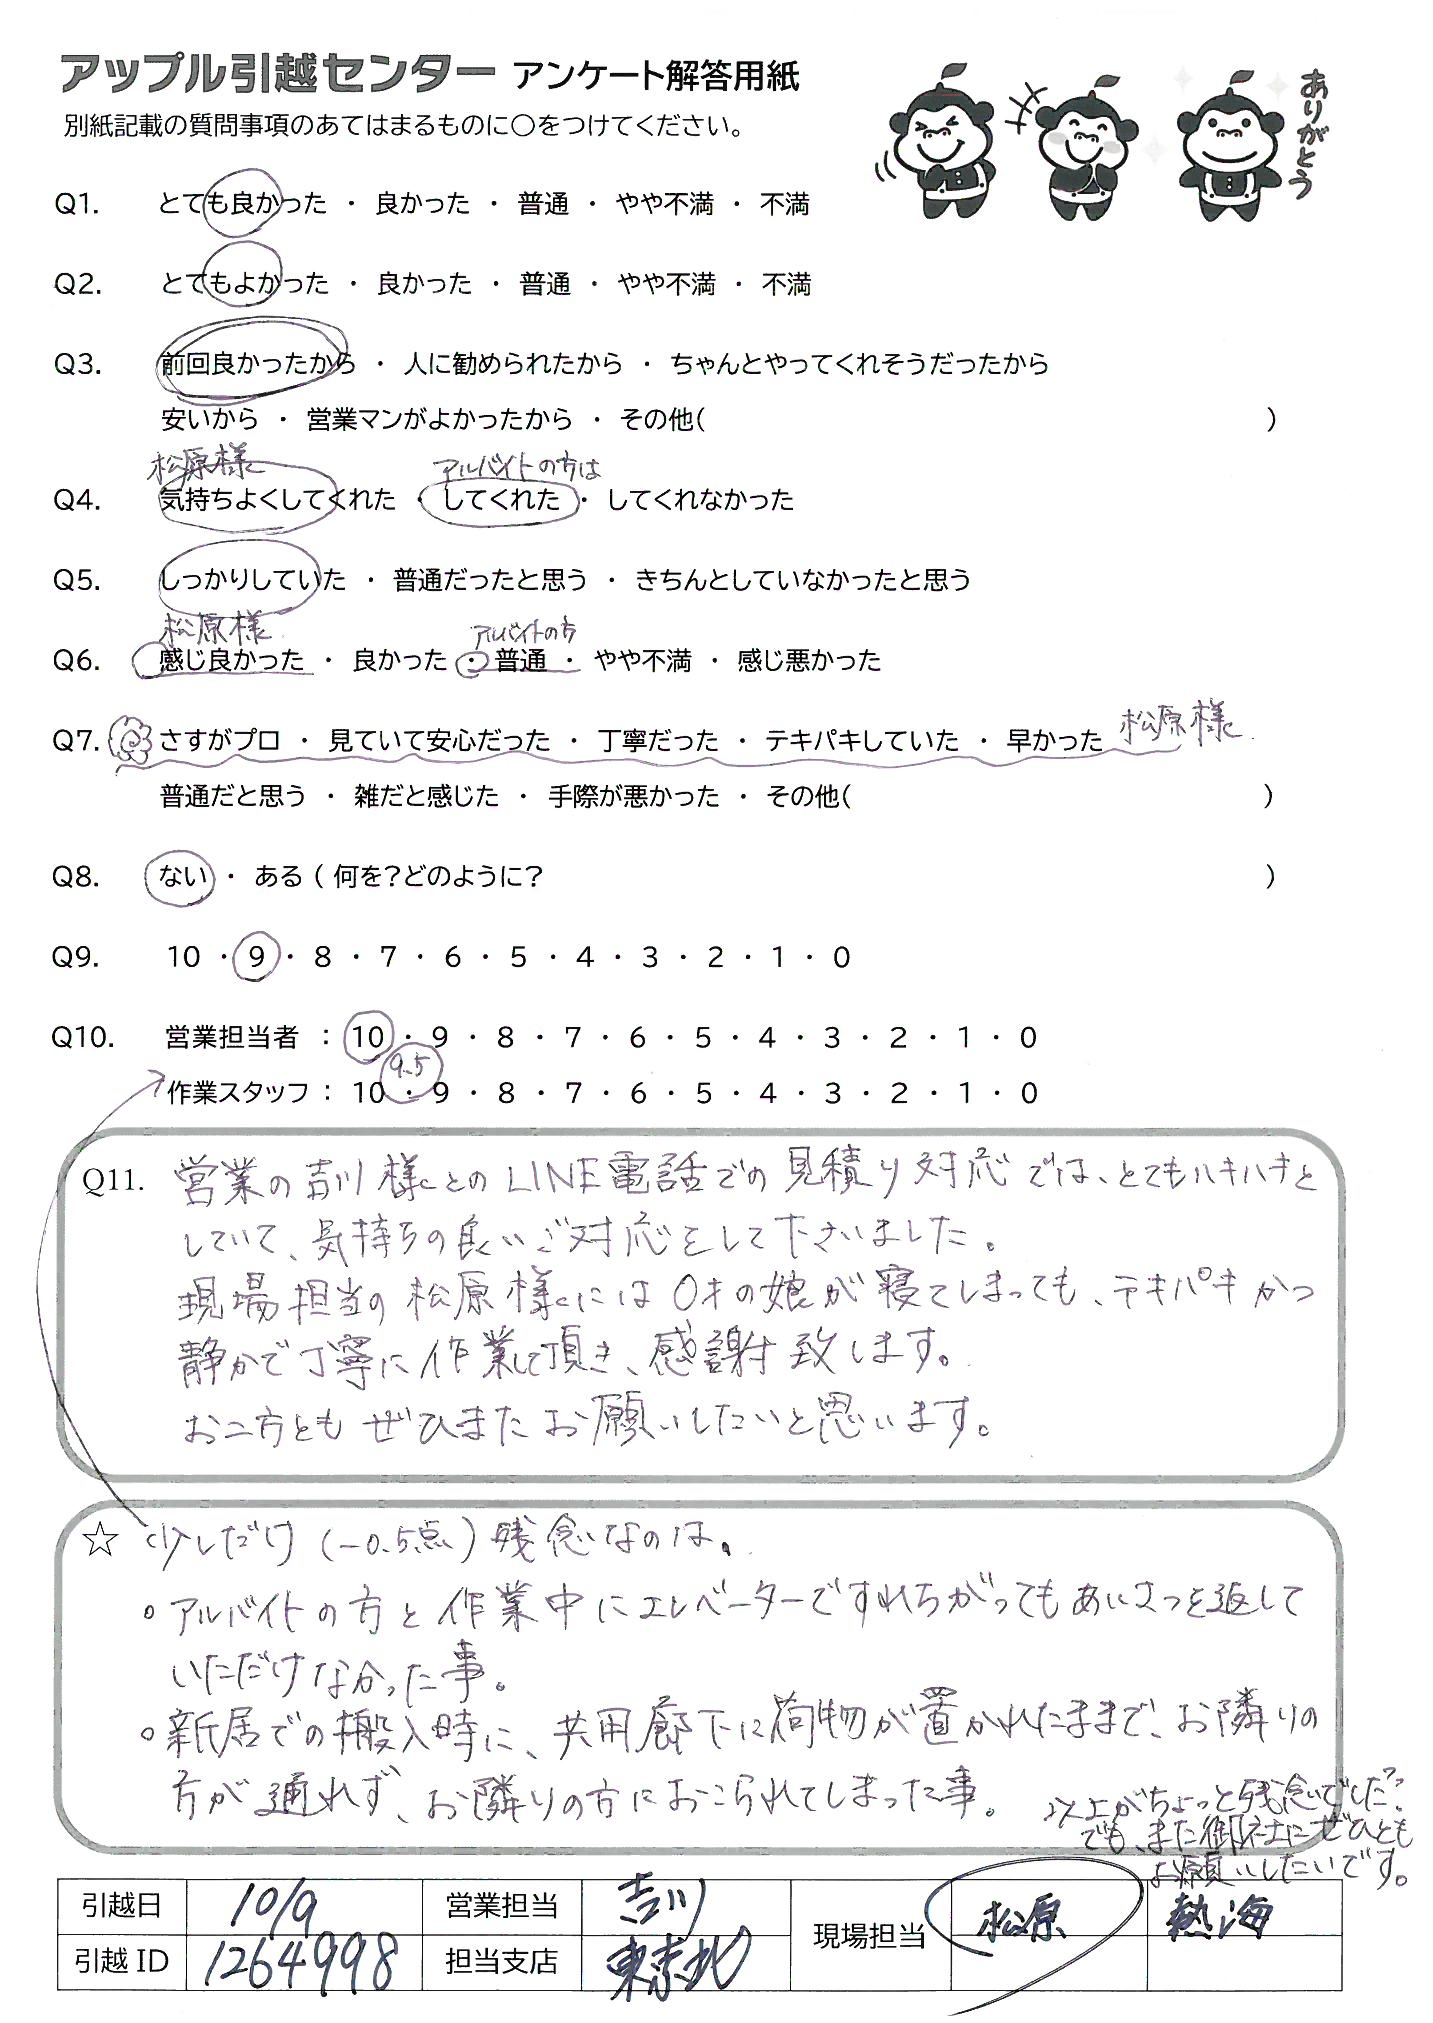 アップル引越センター アンケート解答用紙
別紙記載の質問事項のあてはまるものに○をつけてください。
ありがとう
Q1. とても良かった ・ 良かった ・ 普通 ・ やや不満 ・ 不満
Q2. とてもよかった ・ 良かった ・ 普通 ・ やや不満 ・ 不満
Q3. 前回良かったから ・ 人に勧められたから ・ ちゃんとやってくれそうだったから
安いから ・ 営業マンがよかったから ・ その他( )
松原様 アルバイトの方は
Q4. 気持ちよくしてくれた ・ してくれた ・ してくれなかった
Q5. しっかりしていた ・ 普通だったと思う ・ きちんとしていなかったと思う
松原様 アルバイトの方
Q6. 感じ良かった ・ 良かった ・ 普通 ・ やや不満 ・ 感じ悪かった
Q7. さすがプロ ・ 見ていて安心だった ・ 丁寧だった ・ テキパキしていた ・ 早かった 松原様
普通だと思う ・ 雑だと感じた ・ 手際が悪かった ・ その他( )
Q8. ない ・ ある ( 何を?どのように? )
Q9. 10 ・ 9 ・ 8 ・ 7 ・ 6 ・ 5 ・ 4 ・ 3 ・ 2 ・ 1 ・ 0
Q10. 営業担当者 : 10 ・ 9 ・ 8 ・ 7 ・ 6 ・ 5 ・ 4 ・ 3 ・ 2 ・ 1 ・ 0
9.5
作業スタッフ : 10 ・ 9 ・ 8 ・ 7 ・ 6 ・ 5 ・ 4 ・ 3 ・ 2 ・ 1 ・ 0
Q11. 営業の吉川様とのLINE電話での見積り対応では、とてもハキハキと
していて、気持ちの良いご対応をして下さいました。
現場担当の松原様には0才の娘が寝てしまっても、テキパキかつ
静かで丁寧に作業して頂き、感謝致します。
お二方ともぜひまたお願いしたいと思います。
☆ 少しだけ (-0.5点) 残念なのは、
・アルバイトの方と作業中にエレベーターですれちがってもあいさつを返して
いただけなかった事。
・新居での搬入時に、共用廊下に荷物が置かれたままで、お隣りの
方が通れず、お隣りの方におこられてしまった事。
以上がちょっと残念でした。
でも、また御社にぜひとも
お願いしたいです。
引越日 10/9 営業担当 吉川 現場担当 松原 熱海
引越ID 12644998 担当支店 東京北